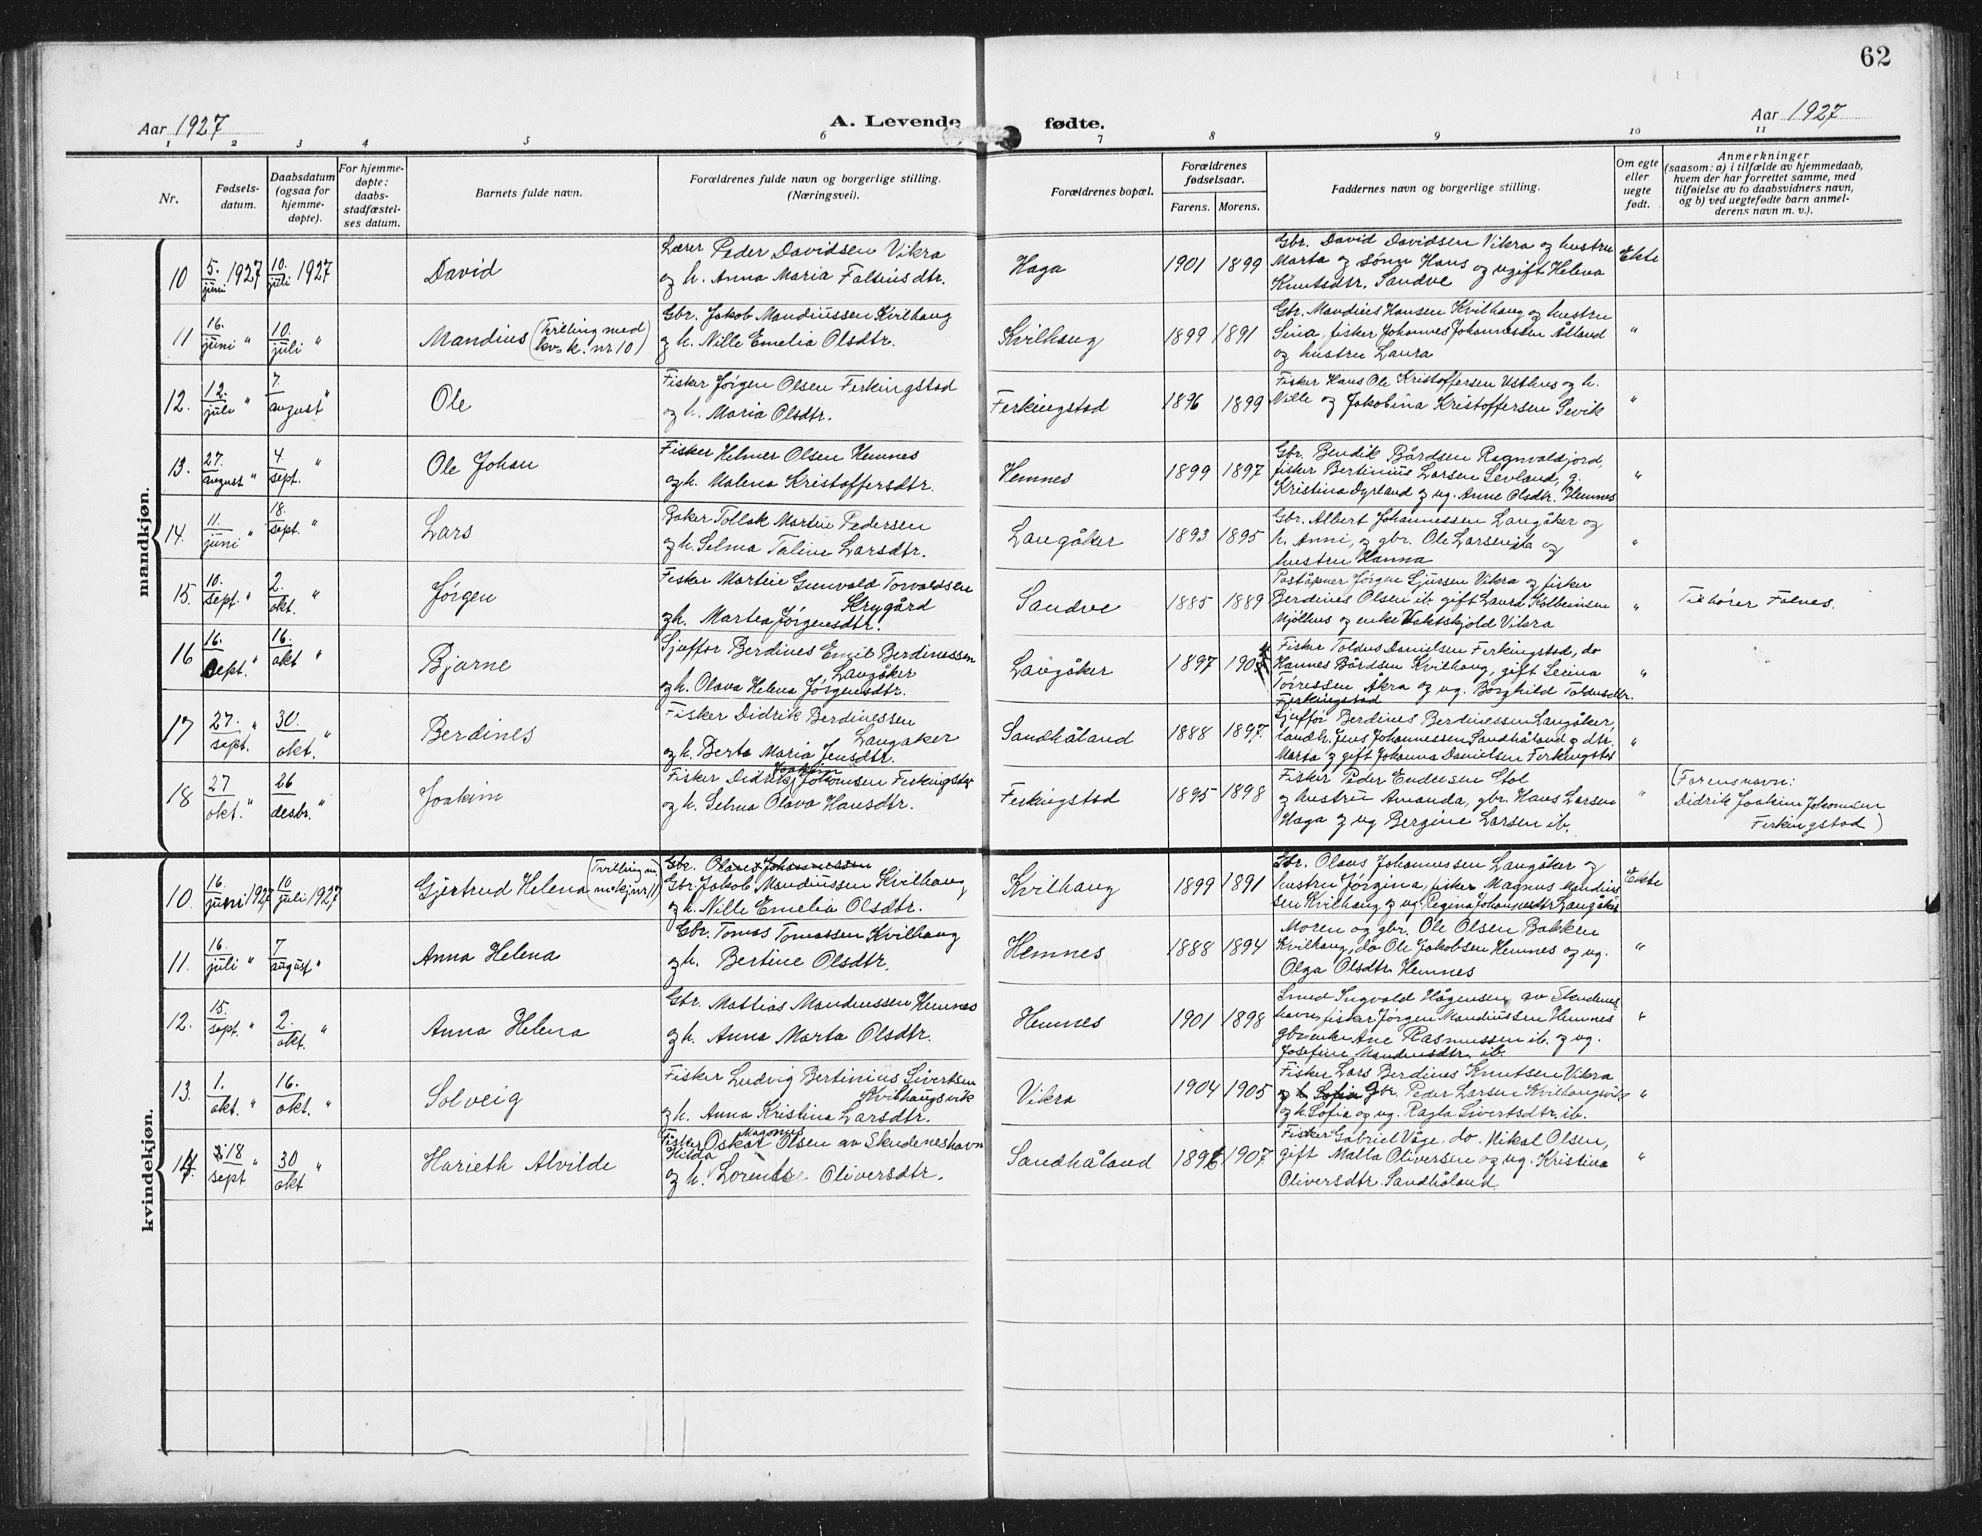 62
Aar 1927
A. Levende fødte.
Aar 1927
1 2 3 4 5 6 7 8 9 10 11
Nr.
Fødsels-
datum.
Daabsdatum
(ogsaa for
hjemme-
døpte).
For hjemme-
døpte:
daabs-
stadfæstel-
ses datum.
Barnets fulde navn.
Forældrenes fulde navn og borgerlige stilling.
(Næringsvei).
Forældrenes bopæl.
Forældrenes
fødselsaar.
Farens. Morens.
Faddernes navn og borgerlige stilling.
Om egte
eller
uegte
født.
Anmerkninger
(saasom: a) i tilfælde av hjemmedaab,
hvem der har forrettet samme, med
tilføielse av to daabsvidners navn,
og b) ved uegtefødte barn anmel-
derens navn m. v.).
mandkjøn.
10 5. juni 1927 10. juli 1927 David
Lærer Peder Davidsen Vikra
og h. Anna Maria Falniusdtr.
Haga 1901 1899
Gbr. David Davidsen Vikra og hustru
Marta og sønn Hans og ugift Helena
Knutsdtr. Sandve
Ekte
11 16. juni " 10. juli " Mandius (Tvilling med
kvk. nr 10)
Gbr. Jakob Mandiussen Kvilhaug
og h. Nille Emelia Olsdtr.
Kvilhaug 1899 1891
Gbr. Mandius Hansen Kvilhaug og hustru
Sina, fisker Johannes Johannessen Åland
og hustru Laura
"
12. 12. juli " 7. august " Ole
Fisker Jørgen Olsen Ferkingstad
og h. Maria Olsdtr.
Ferkingstad 1896 1899
Fisker Hans Ole Kristoffersen Usthus og h.
Nille og Jakobina Kristoffersen Sevik
"
13. 27. august " 4. sept. " Ole Johan
Fisker Helmer Olsen Hemnes
og h. Malena Kristoffersdtr.
Hemnes 1899 1897
Gbr. Bendik Bårdsen Ragnvaldsjord,
fisker Bertinius Larsen Sevland, g.
Kristina Dyrland og ug. Anne Olsdtr. Hemnes
"
14. 11. juni " 18. sept. " Lars
Baker Tollak Martin Pedersen
og h. Selma Taline Larsdtr.
Langåker 1893 1895
Gbr. Albert Johannessen Langåker og
h. Anni, og gbr. Ole Larsen ib og
hustru Hanna
"
15. 10. sept. " 2. okt. " Jørgen
Fisker Martin Gunvald Torvaldsen
Skrygård
og h. Martea Jørgensdtr.
Sandve 1885 1889
Poståpner Jørgen Sjursen Vikra og fisker
Berdines Olsen ib. gift Laura Kolbeinsen
Mjølhus og enke Vaktskjold Vikra
"
Tilhører Falnes.
16 16. sept. " 16. okt " Bjarne
Sjuffør Berdines Emil Berdinessen
Langåker
og h. Olava Helena Jørgensdtr.
Langåker 1897
Fisker Toldus Danielsen Ferkingstad, do
Hannes Bårdsen Kvilhaug, gift Severina
Torressen Åkra og ug. Borghild Toldusdtr.
Ferkingstad
"
17 27. sept. " 30. okt. " Berdines
Fisker Didrik Berdinessen
Langåker
og h. Berta Maria Jensdtr.
Sandhåland 1888 1897.
Sjuffør Berdines Berdinessen Langåker,
landh. Jens Johannessen Sandhåland og dtr
Marta og gift Johanna Danielsen Ferkingstad
"
18 27 okt. " 26 desbr. " Joakim
Joakim
Fisker Didrik Johansen Ferkingstad
og h. Selma Olava Hansdtr.
Ferkingstad 1895 1898
Fisker Peder Endresen Stol
og hustru Amanda, gbr. Hans Larsen
Haga og ug Bergine Larsen ib.
"
(Farensnavn:
Didrik Joakim Johansen
Ferkingstad)
kvindekjøn.
10. 16. juni 1927 10 juli 1927 Gjertrud Helena (Tvilling m.
m.kj.nr 11)
Gbr. Olaus Johannessen
Gbr. Jakob Mandiussen Kvilhaug
og h. Nille Emelia Olsdtr.
Kvilhaug 1899 1891
Gbr. Olaus Johannessen Langåker og
hustru Jørgina, fisker Magnus Mandius
sen Kvilhaug og ug. Regina Johannesdtr Langåker
Ekte
11. 16. juli " 7 august " Anna Helena
Gbr. Tomas Tomassen Kvilhaug
og h. Bertine Olsdtr.
Hemnes 1888 1894
Moren og gbr. Ole Olsen Bakken
Kvilhaug, do Ole Jakobsen Hemnes og ug.
Olga Olsdtr. Hemnes
"
12. 15. sept. " 2. okt. " Anna Helena
Gbr. Mattias Mandiussen Hemnes
og h. Anna Marta Olsdtr.
Hemnes 1901 1898
Smed Ingvald Hågensen av Skudenes-
havn, fisker Jørgen Mandiussen Hemnes
gbr.enke Ane Rasmussen ib. og ug.
Josefine Mandiusdtr. ib.
"
13. 1. okt. " 16. okt. " Solveig
Fisker Ludvig Bertinius Sivertsen
Kvilhaugsvik
og h. Anna Kristina Larsdtr.
Vikra 1904 1905
Fisker Lars Berdines Knutsen Vikra
og h Sofia Gbr. Peder Larsen Kvilhaugsvik
og h. Sofia og ug. Ragla Sivertsdtr. ib.
"
14. 18 sept " 30 okt " Harieth Alvilde
Magnus
Fisker Oskar Olsen av Skudeneshavn
Hilda
og h. Lorentse Oliversdtr.
Sandhåland 1907
Fisker Gabriel Våge, do. Nikal Olsen,
gift Malla Oliversen og ug. Kristina
Oliversdtr. Sandhåland
"